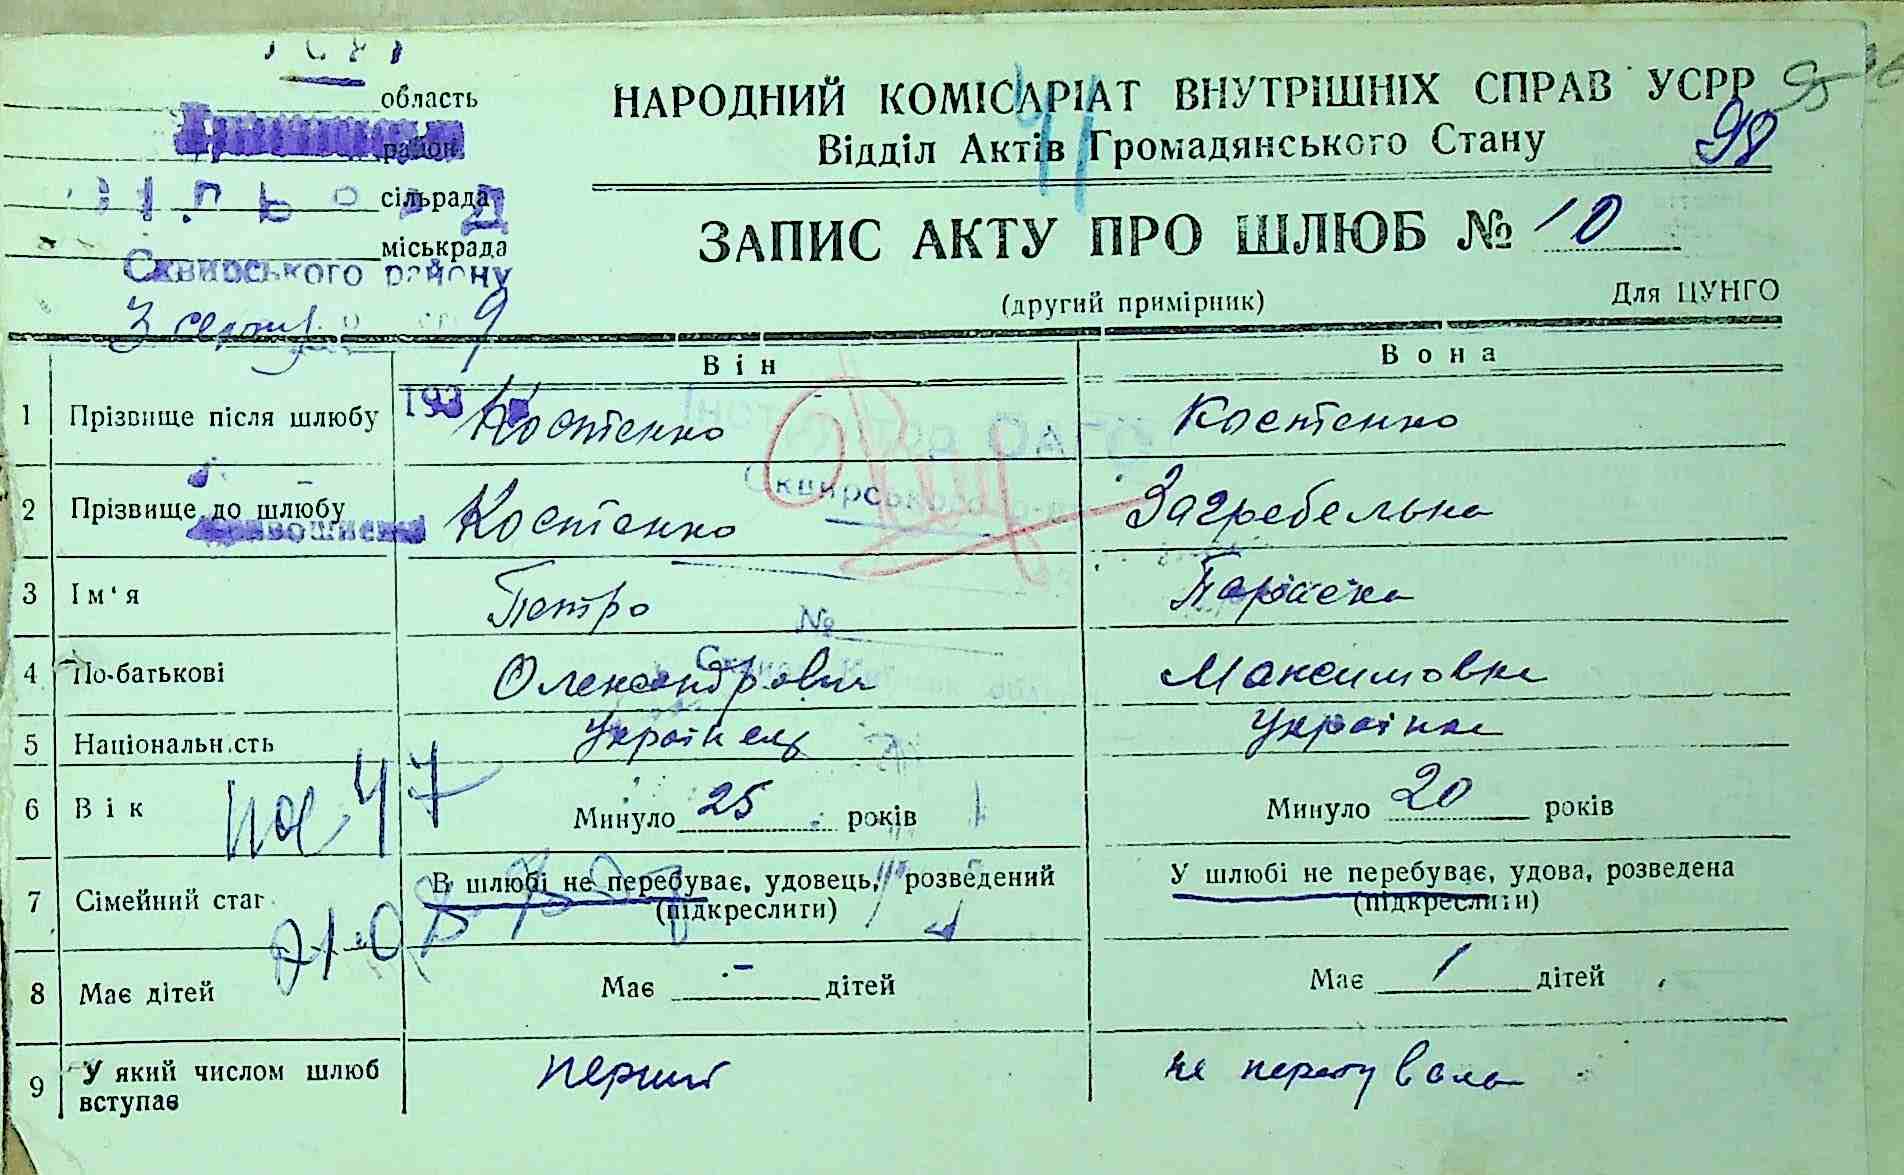 область
район
сільрада
міськрада
Сквирського району
НАРОДНИЙ КОМІСАРІАТ ВНУТРІШНІХ СПРАВ УСРР
95
98
Відділ Актів Громадянського Стану
ЗАПИС АКТУ ПРО ШЛЮБ № 10
(другий примірник)
Для ЦУНГО
Він
Вона
1 Прізвище після шлюбу Костенко Костенко
2 Прізвище до шлюбу Костенко Загребельна
3 Ім'я Петро Параска
№
4 По-батькові Олександрович Максимовна
5 Національн.сть Українець Українка
6 Вік Минуло 25 років Минуло 20 років
7 Сімейний стан В шлюбі не перебуває, удовець, розведений У шлюбі не перебуває, удова, розведена
(підкреслити) (підкреслити)
8 Має дітей Має - дітей Має 1 дітей
9 У який числом шлюб вступає перший